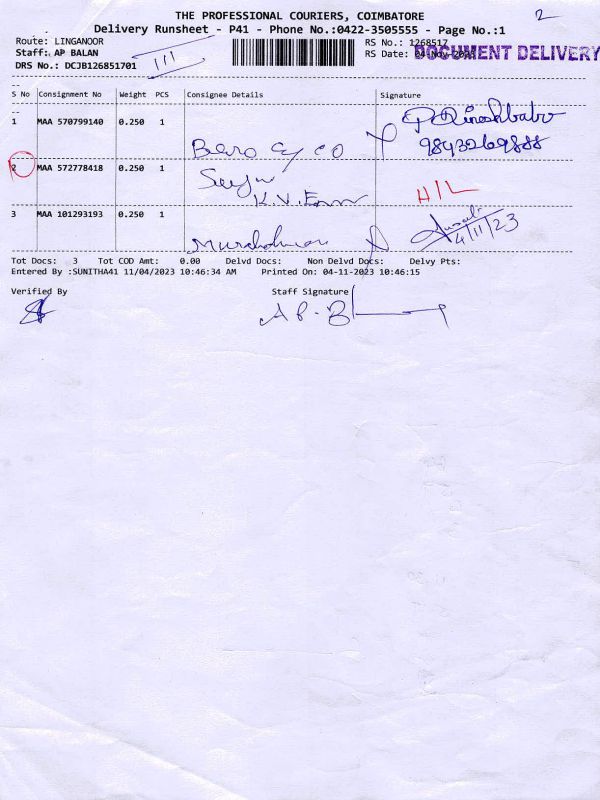 THE PROFESSIONAL COURIERS, COIMBATORE
2
Delivery Runsheet - P41 - Phone No.:0422-3505555 - Page No.:1
Route: LINGANOOR
RS No.: 1268517
Staff: AP BALAN
RS Date: 04-Nov-2023
DOCUMENT DELIVERY
DRS No.: DCJB126851701
S No Consignment No Weight PCS Consignee Details Signature
1 MAA 570799140 0.250 1
Baro Cy CO
9843269888
2 MAA 572778418 0.250 1
K.V.
H/L
3 MAA 101293193 0.250 1
4/11/23
Tot Docs: 3 Tot COD Amt: 0.00 Delvd Docs: Non Delvd Docs: Delvy Pts:
Entered By :SUNITHA41 11/04/2023 10:46:34 AM Printed On: 04-11-2023 10:46:15
Verified By Staff Signature
AP. B